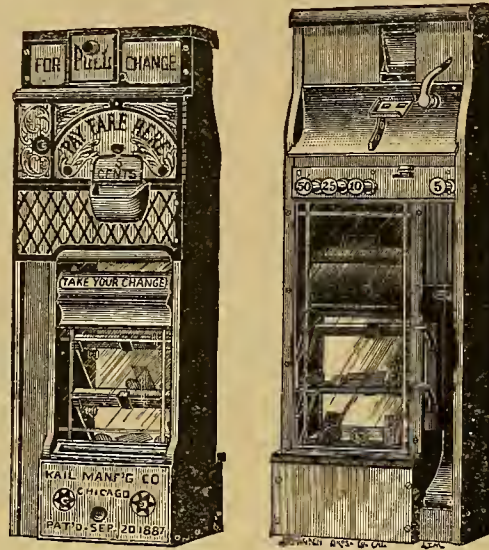 FOR PULL CHANGE
PAY FARE HERE
5
CENTS
TAKE YOUR CHANGE
KAIL MANF'G CO
CHICAGO
PAT'D. SEP. 20 1887
50 25 10 5